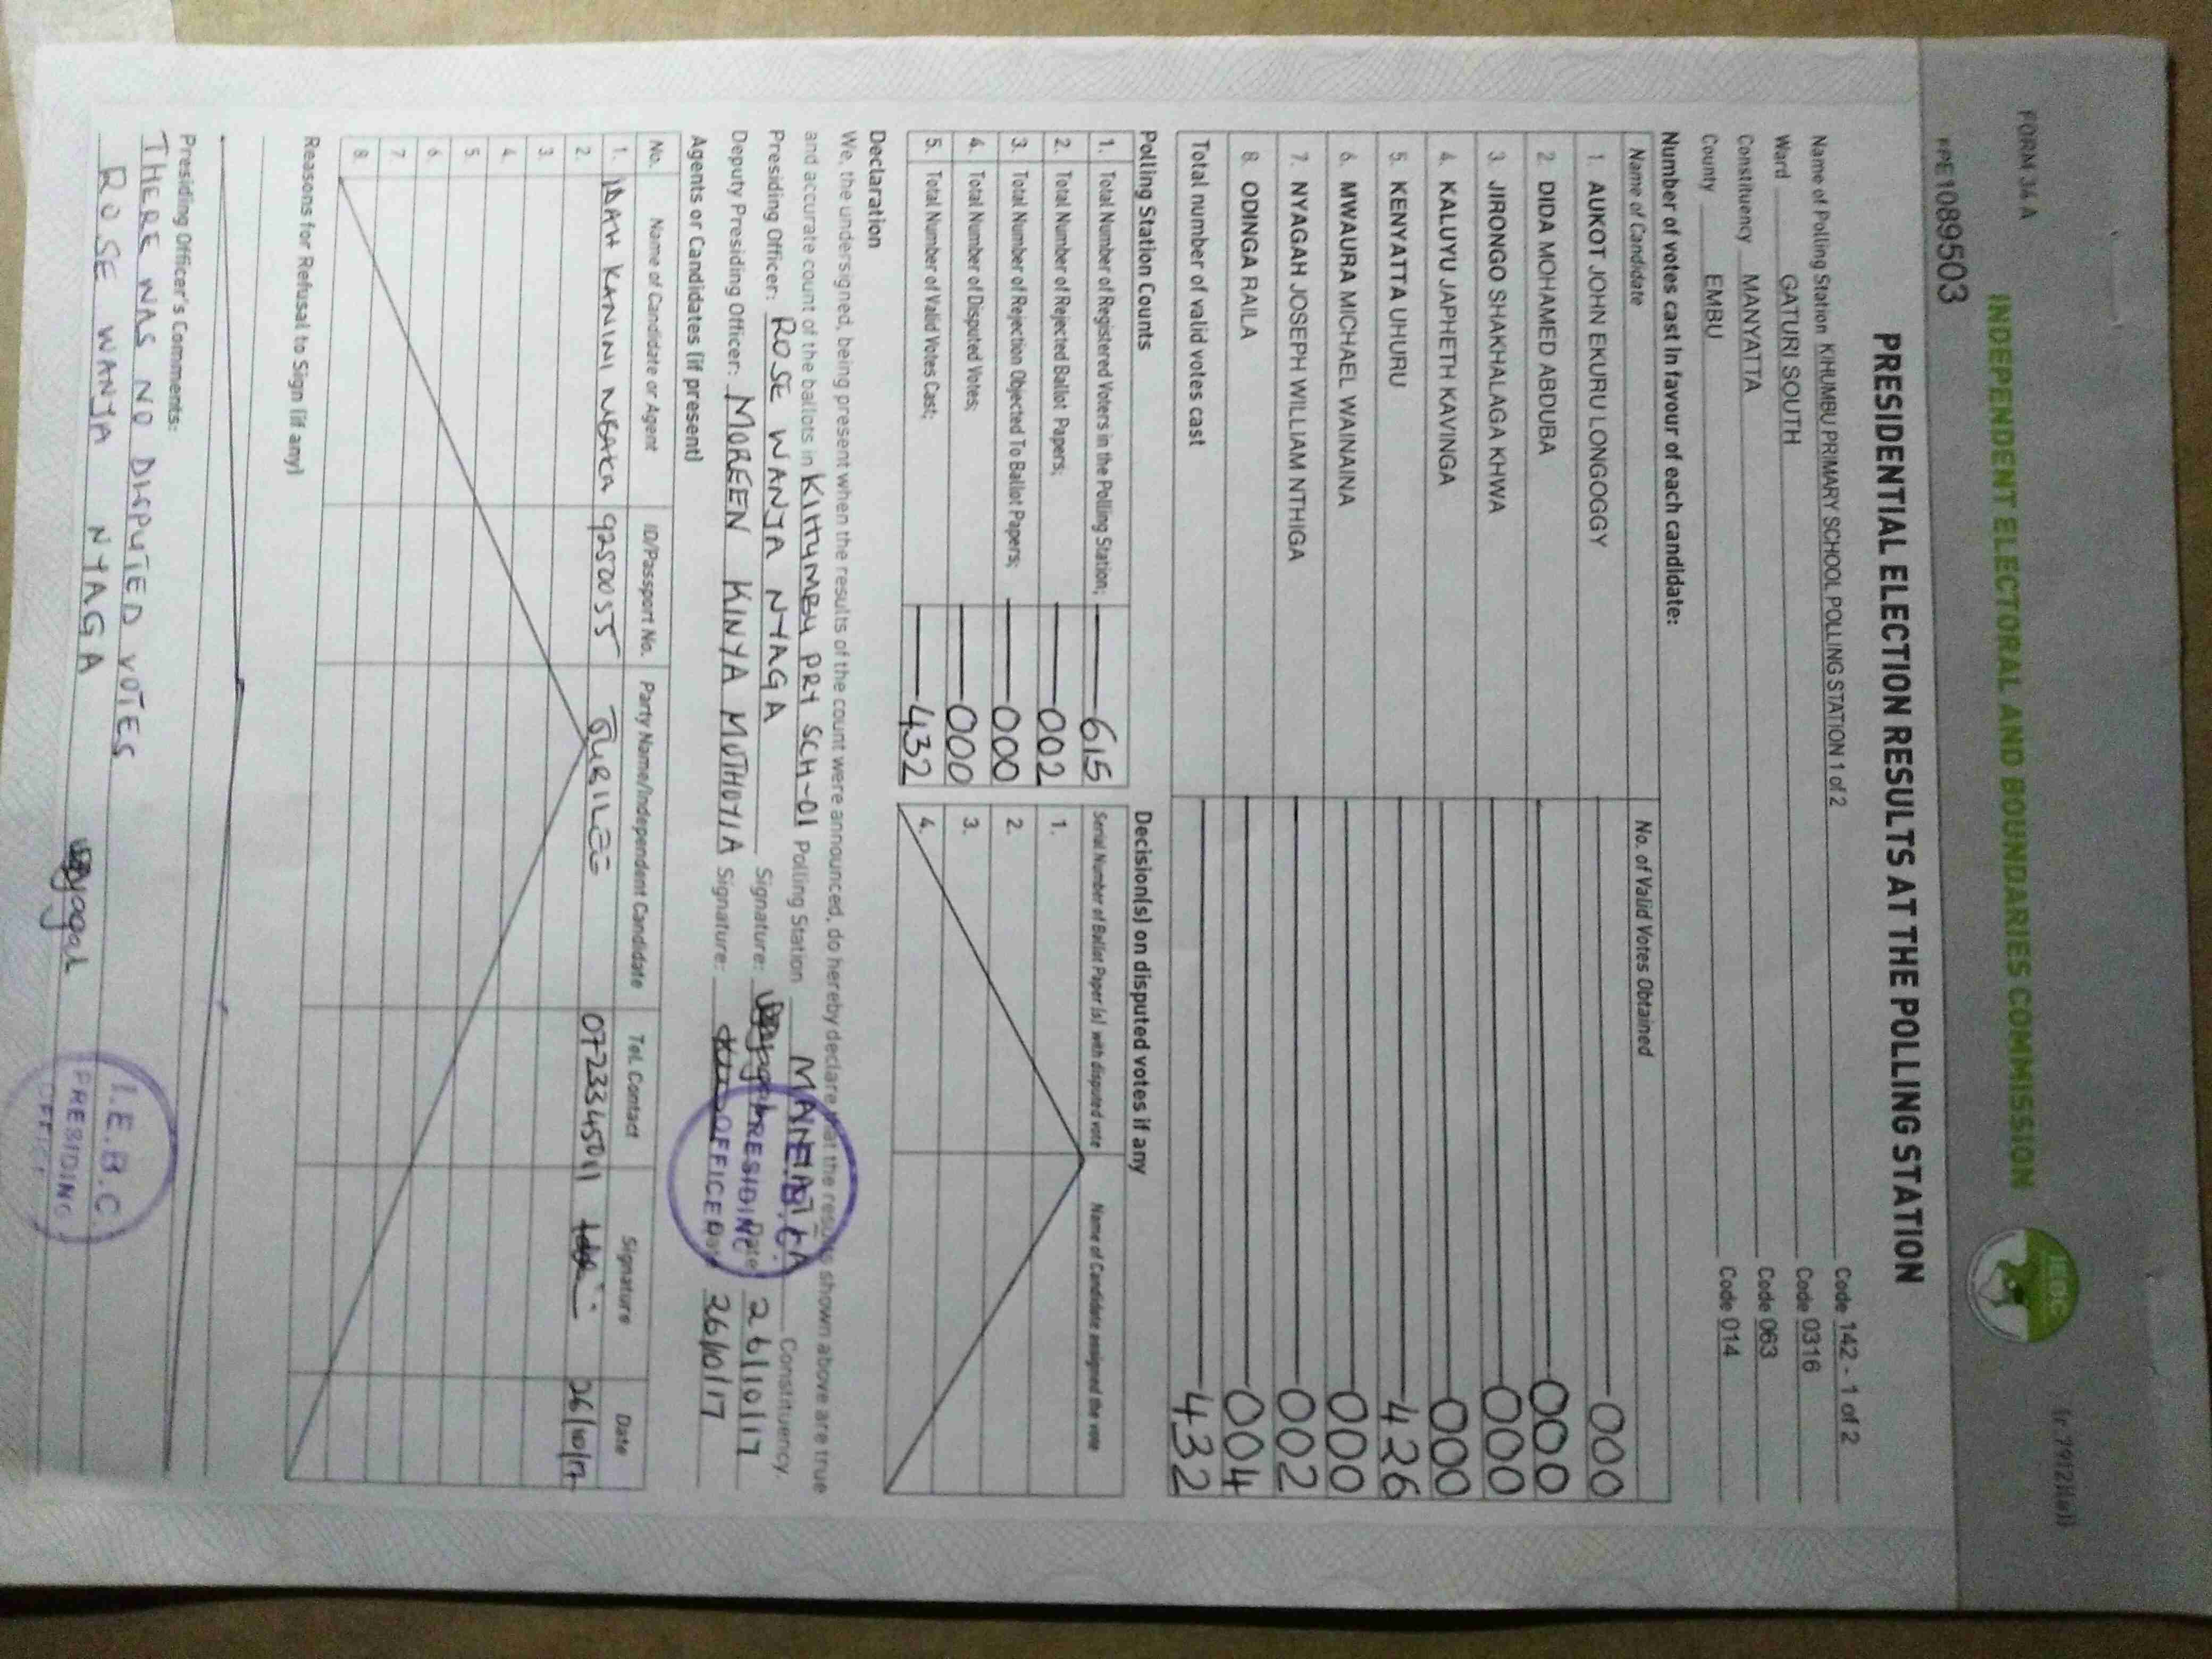 FORM 34 A
(r.79(2)(a))
INDEPENDENT ELECTORAL AND BOUNDARIES COMMISSION
IEBC
PE1089503
PRESIDENTIAL ELECTION RESULTS AT THE POLLING STATION
Name of Polling Station KIHUMBU PRIMARY SCHOOL POLLING STATION 1 of 2 Code 142 - 1 of 2
Ward GATURI SOUTH Code 0316
Constituency MANYATTA Code 063
County EMBU Code 014
Number of votes cast in favour of each candidate:
Name of Candidate No. of Valid Votes Obtained
1. AUKOT JOHN EKURU LONGOGGY 000
2. DIDA MOHAMED ABDUBA 000
3. JIRONGO SHAKHALAGA KHWA 000
4. KALUYU JAPHETH KAVINGA 000
5. KENYATTA UHURU 426
6. MWAURA MICHAEL WAINAINA 000
7. NYAGAH JOSEPH WILLIAM NTHIGA 002
8. ODINGA RAILA 004
Total number of valid votes cast 432
Polling Station Counts Decision(s) on disputed votes if any
1. Total Number of Registered Voters in the Polling Station; 615 Serial Number of Ballot Paper (s) with disputed vote Name of Candidate assigned the vote
2. Total Number of Rejected Ballot Papers; 002 1.
3. Total Number of Rejection Objected To Ballot Papers; 000 2.
4. Total Number of Disputed Votes; 000 3.
5. Total Number of Valid Votes Cast; 432 4.
Declaration
We, the undersigned, being present when the results of the count were announced, do hereby declare that the results shown above are true
and accurate count of the ballots in KIHUMBU PRY SCH-01 Polling Station MANYATTA Constituency.
Presiding Officer: ROSE WANJA NYAGA Signature: Date 26/10/17
Deputy Presiding Officer: MOREEN KINYA MUTHOMIA Signature: Date 26/10/17
I.E.B.C.
PRESIDING
OFFICE
Agents or Candidates (if present)
No. Name of Candidate or Agent ID/Passport No. Party Name/Independent Candidate Tel. Contact Signature Date
1. IDAH KANINI 9250055 JUBILEE 0723345011 26/10/17
2.
3.
4.
5.
6.
7.
8.
Reasons for Refusal to Sign (if any)
Presiding Officer's Comments:
THERE WAS NO DISPUTED VOTES
ROSE WANJA NYAGA
I.E.B.C.
PRESIDING
OFFICE